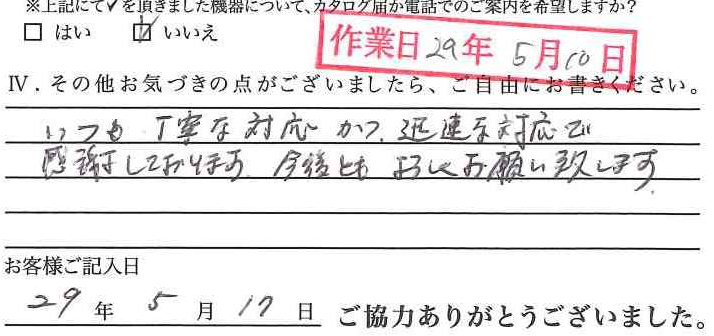 ※上記にて✓を頂きました機器について、カタログ届か電話でのご案内を希望しますか?
□ はい ☑ いいえ
作業日 29年 5月10日
Ⅳ. その他お気づきの点がございましたら、ご自由にお書きください。
いつも 丁寧な対応 かつ、迅速な対応で
感謝しております。今後とも よろしくお願い致します。
お客様ご記入日
29 年 5 月 17 日 ご協力ありがとうございました。